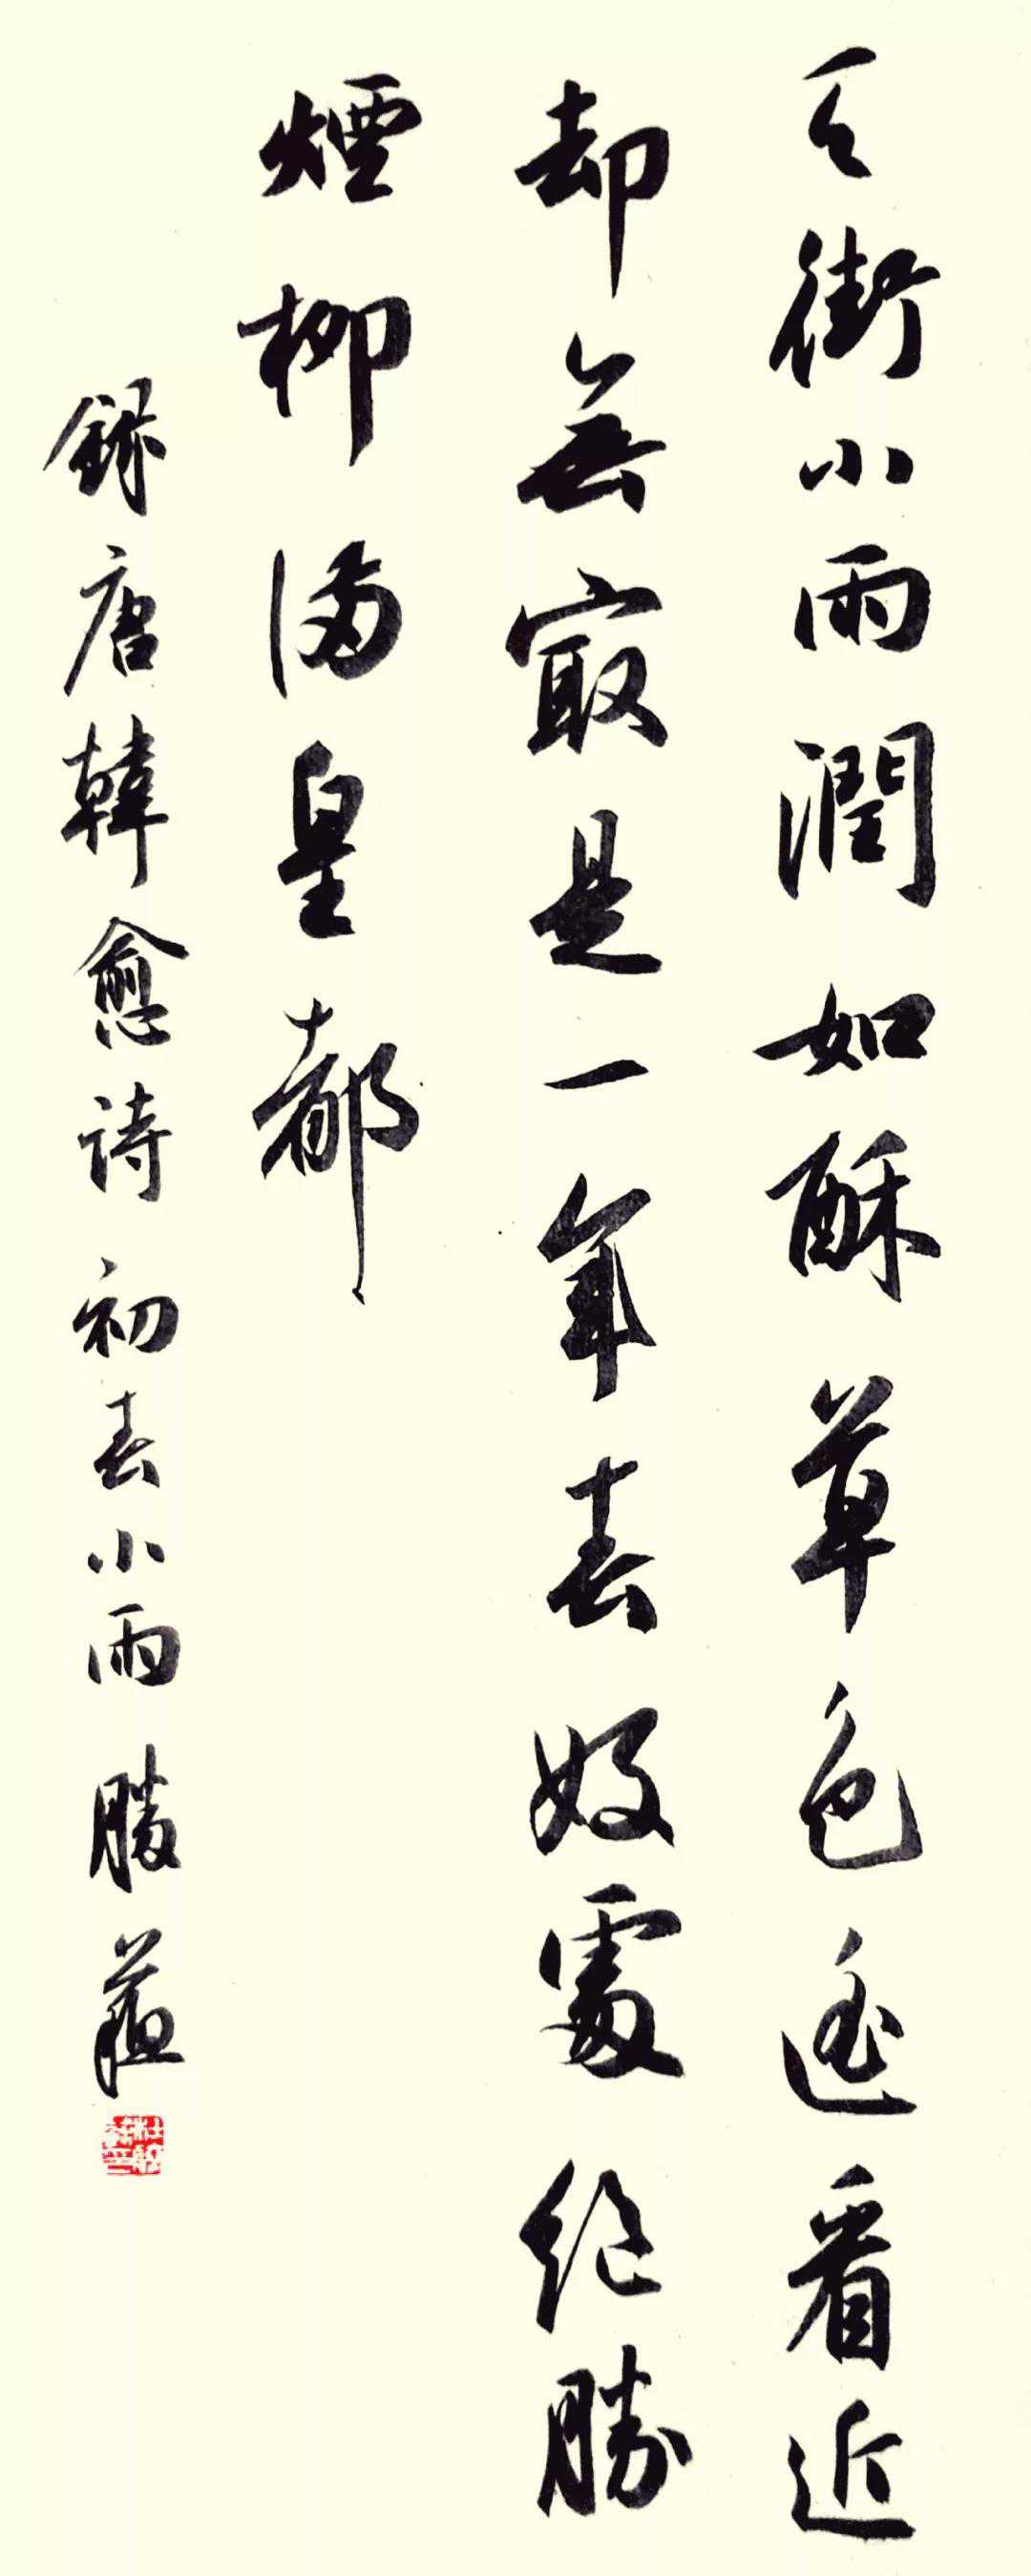 天街小雨潤如酥草色遥看近
却無冣是一年春好處絕勝
煙柳滿皇都
録唐韓愈詩初春小雨勝蘓